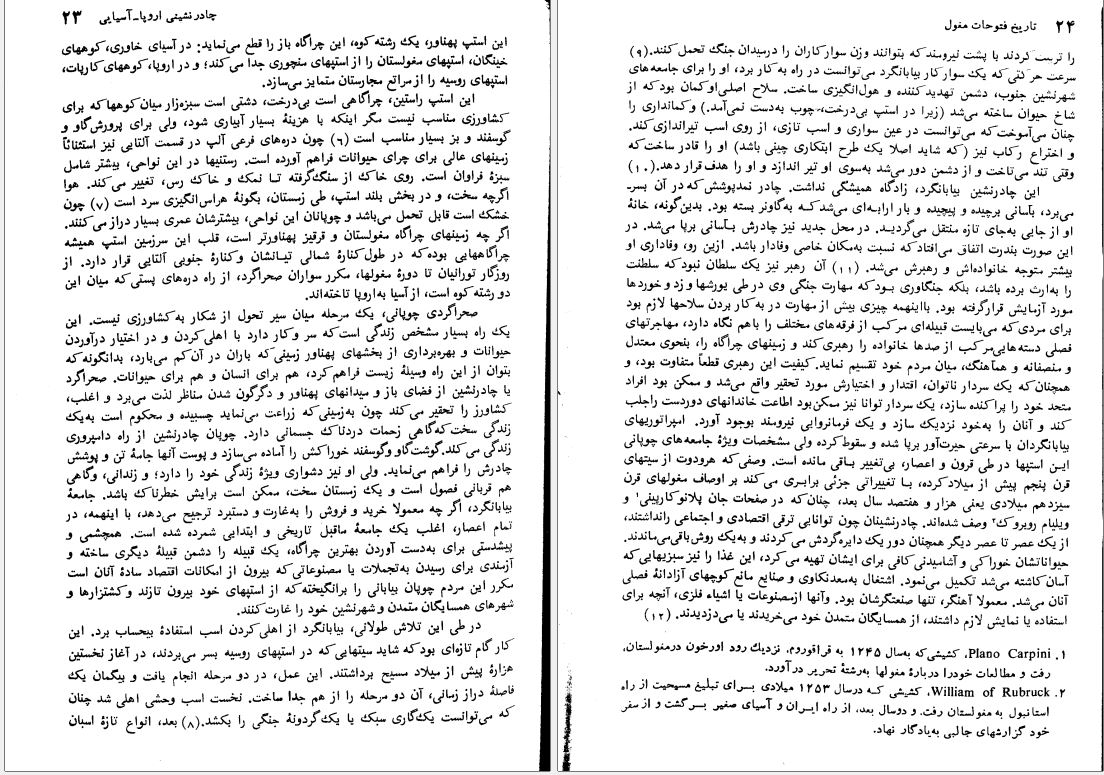 چادرنشینی اروپا-آسیایی ۲۳
این استپ پهناور، یک رشته کوه، این چراگاه باز را قطع می‌نماید: در آسیای خاوری، کوههای
خینگان، استپهای مغولستان را از استپهای منچوری جدا می‌کند؛ و در اروپا، کوههای کارپات،
استپهای روسیه را از مراتع مجارستان متمایز می‌سازد.
این استپ راستین، چراگاهی است بی‌درخت، دشتی است سبزه‌زار میان کوهها که برای
کشاورزی مناسب نیست مگر اینکه با هزینهٔ بسیار آبیاری شود، ولی برای پرورش گاو و
گوسفند و بز بسیار مناسب است (۶) چون دره‌های فرعی آلپ در قسمت آلتایی نیز استثنائاً
زمینهای عالی برای چرای حیوانات فراهم آورده است. رستنیها در این نواحی، بیشتر شامل
سبزهٔ فراوان است. روی خاک از سنگ گرفته تا نمک و خاک رس، تغییر می‌کند. هوا
اگرچه سخت، و در بخش بلند استپ، طی زمستان، بگونهٔ هراس‌انگیزی سرد است (۷) چون
خشک است قابل تحمل می‌باشد و چوپانان این نواحی، بیشترشان عمری بسیار دراز می‌کنند.
اگر چه زمینهای چراگاه مغولستان و قرقیز پهناورتر است، قلب این سرزمین استپ همیشه
چراگاههایی بوده که در طول کنارهٔ شمالی تیانشان و کنارهٔ جنوبی آلتایی قرار دارد. از
روزگار تورانیان تا دورهٔ مغولها، مکرر سواران صحراگرد، از راه دره‌های پستی که میان این
دو رشته کوه است، از آسیا به‌اروپا تاخته‌اند.
صحراگردی چوپانی، یک مرحله میان سیر تحول از شکار به کشاورزی نیست. این
یک راه بسیار مشخص زندگی است که سر و کار دارد با اهلی کردن و در اختیار درآوردن
حیوانات و بهره‌برداری از بخشهای پهناور زمینی که باران در آن کم می‌بارد، بدانگونه که
بتوان از این راه وسیلهٔ زیست فراهم کرد، هم برای انسان و هم برای حیوانات. صحراگرد
یا چادرنشین از فضای باز و میدانهای پهناور و دگرگون شدن مناظر لذت می‌برد و اغلب،
کشاورز را تحقیر می‌کند چون به‌زمینی که زراعت می‌نماید چسبیده و محکوم است به‌یک
زندگی سخت که گاهی زحمات دردناک جسمانی دارد. چوپان چادرنشین از راه دامپروری
زندگی می کند. گوشت گاو و گوسفند خوراکش را آماده می‌سازد و پوست آنها جامهٔ تن و پوشش
چادرش را فراهم می‌نماید. ولی او نیز دشواری ویژهٔ زندگی خود را دارد؛ و زندانی، وگاهی
هم قربانی فصول است و یک زمستان سخت، ممکن است برایش خطرناک باشد. جامعهٔ
بیابانگرد، اگر چه معمولا خرید و فروش را به‌غارت و دستبرد ترجیح می‌دهد، با اینهمه، در
تمام اعصار، اغلب یک جامعهٔ ماقبل تاریخی و ابتدایی شمرده شده است. همچشمی و
پیشدستی برای به‌دست آوردن بهترین چراگاه، یک قبیله را دشمن قبیلهٔ دیگری ساخته و
آزمندی برای رسیدن به‌تجملات یا مصنوعاتی که بیرون از امکانات اقتصاد سادهٔ آنان است
مکرر این مردم چوپان بیابانی را برانگیخته که از استپهای خود بیرون تازند و کشتزارها و
شهرهای همسایگان متمدن و شهرنشین خود را غارت کنند.
در طی این تلاش طولانی، بیابانگرد از اهلی کردن اسب استفادهٔ بیحساب برد. این
کار گام تازه‌ای بود که شاید سیتهایی که در استپهای روسیه بسر می‌بردند، در آغاز نخستین
هزارهٔ پیش از میلاد مسیح برداشتند. این عمل، در دو مرحله انجام یافت و بیگمان یک
فاصلهٔ دراز زمانی، آن دو مرحله را از هم جدا ساخت. نخست اسب وحشی اهلی شد چنان
که می‌توانست یک گاری سبک یا یک گردونهٔ جنگی را بکشد.(۸) بعد، انواع تازهٔ اسبان
۲۴ تاریخ فتوحات مغول
را تربیت کردند با پشت نیرومند که بتوانند وزن سوارکاران را در میدان جنگ تحمل کنند.(۹)
سرعت حرکتی که یک سوار کار بیابانگرد می‌توانست در راه به کار برد، او را برای جامعه‌های
شهرنشین جنوب، دشمن تهدید کننده و هول‌انگیزی ساخت. سلاح اصلی او کمان بود که از
شاخ حیوان ساخته می‌شد (زیرا در استپ بی‌درخت، چوب به‌دست نمی‌آمد.) و کمانداری را
چنان می‌آموخت که می‌توانست در عین سواری و اسب تازی، از روی اسب تیراندازی کند.
و اختراع رکاب نیز (که شاید اصلا یک طرح ابتکاری چینی باشد) او را قادر ساخت که
وقتی تند می‌تاخت و از دشمن دور می‌شد به‌سوی او تیر اندازد و او را هدف قرار دهد.(۱۰)
این چادرنشین بیابانگرد، زادگاه همیشگی نداشت. چادر نمدپوشش که در آن بسر
می‌برد، بآسانی برچیده و پیچیده و بار ارابه‌ای می‌شد که به‌گاو نر بسته بود. بدین‌گونه، خانهٔ
او از جایی به‌جای تازه منتقل می‌گردید. در محل جدید نیز چادرش بآسانی برپا می‌شد. در
این صورت بندرت اتفاق می‌افتاد که نسبت به‌مکان خاصی وفادار باشد. ازین رو، وفاداری او
بیشتر متوجه خانواده‌اش و رهبرش می‌شد. (۱۱) آن رهبر نیز یک سلطان نبود که سلطنت
را به‌ارث برده باشد، بلکه جنگاوری بود که مهارت جنگی وی در طی یورشها و زد و خوردها
مورد آزمایش قرارگرفته بود. بااینهمه چیزی بیش از مهارت در به کار بردن سلاحها لازم بود
برای مردی که می‌بایست قبیله‌ای مرکب از فرقه‌های مختلف را باهم نگاه دارد، مهاجرتهای
فصلی دسته‌هایی مرکب از صدها خانواده را رهبری کند و زمینهای چراگاه را، بنحوی معتدل
و منصفانه و هماهنگ، میان مردم خود تقسیم نماید. کیفیت این رهبری قطعاً متفاوت بود، و
همچنان که یک سردار ناتوان، اقتدار و اختیارش مورد تحقیر واقع می‌شد و ممکن بود افراد
متحد خود را پراکنده سازد، یک سردار توانا نیز ممکن بود اطاعت خاندانهای دوردست را جلب
کند و آنان را به‌خود نزدیک سازد و یک فرمانروایی نیرومند بوجود آورد. امپراتوریهای
بیابانگردان با سرعتی حیرت‌آور برپا شده و سقوط کرده ولی مشخصات ویژهٔ جامعه‌های چوپانی
این استپها در طی قرون و اعصار، بی‌تغییر باقی مانده است. وصفی که هرودوت از سیتهای
قرن پنجم پیش از میلاد کرده، با تغییراتی جزئی برابری می‌کند بر اوصاف مغولهای قرن
سیزدهم میلادی یعنی هزار و هفتصد سال بعد، چنان که در صفحات جان پلانو کارپینی۱ و
ویلیام روبروک۲ وصف شده‌اند. چادرنشینان چون توانایی ترقی اقتصادی و اجتماعی را نداشتند،
از یک عصر تا عصر دیگر همچنان دور یک دایره گردش می‌کردند و به‌یک روش باقی می‌ماندند.
حیواناتشان خوراکی و آشامیدنی کافی برای ایشان تهیه می کرد، این غذا را نیز سبزیهایی که
آسان کاشته می‌شد تکمیل می‌نمود. اشتغال به‌معدنکاوی و صنایع مانع کوچهای آزادانهٔ فصلی
آنان می‌شد. معمولا آهنگر، تنها صنعتگرشان بود. و آنها ازمصنوعات یا اشیاء فلزی، آنچه برای
استفاده یا نمایش لازم داشتند، از همسایگان متمدن خود می‌خریدند یا می‌دزدیدند. (۱۲)
۱. Plano Carpini، کشیشی که به‌سال ۱۲۴۵ به قراقوروم، نزدیک رود اورخون درمغولستان،
رفت و مطالعات خودرا دربارهٔ مغولها به‌رشتهٔ تحریر درآورد.
۲. William of Rubruck، کشیشی که درسال ۱۲۵۳ میلادی برای تبلیغ مسیحیت از راه
استانبول به‌مغولستان رفت. و دوسال بعد، از راه ایران و آسیای صغیر برگشت و از سفر
خود گزارشهای جالبی به‌یادگار نهاد.